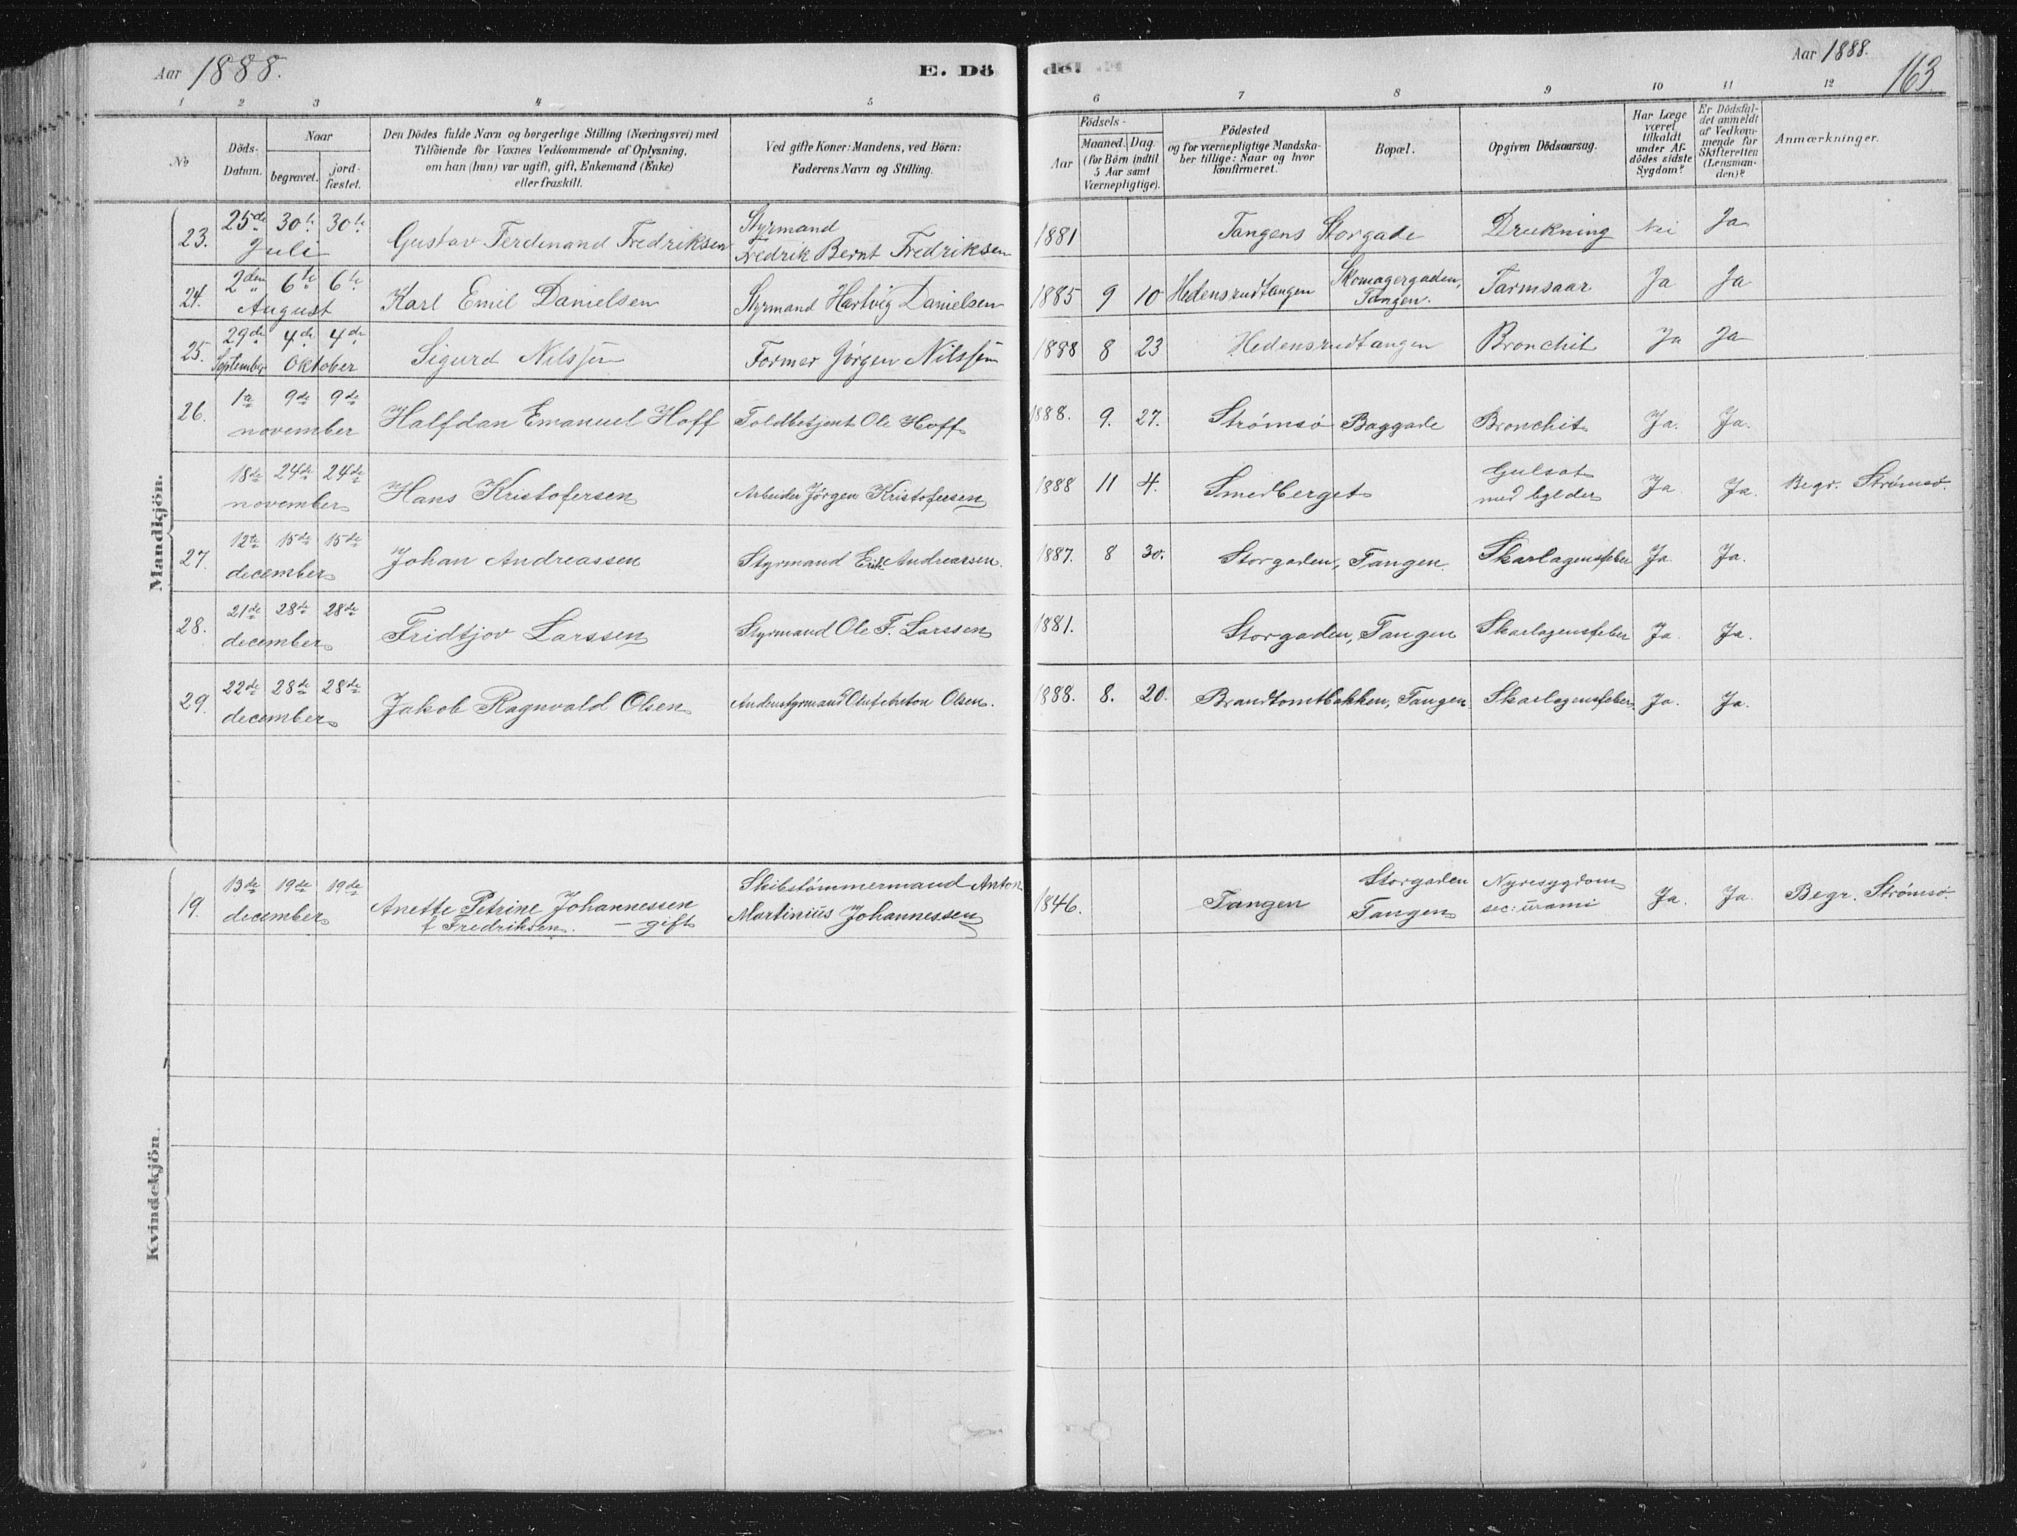 Aar 1888.
E. Dö
de.
Aar 1888.
163
1 2 3 4 5 6 7 8 9 10 11 12
No
Döds-
Datum.
Naar
begravet.
jord-
fæstet.
Den Dödes fulde Navn og borgerlige Stilling (Næringsvei) med
Tilföiende for Voxnes Vedkommende af Oplysning,
om han (hun) var ugift, gift, Enkemand (Enke)
eller fraskilt.
Ved gifte Koner: Mandens, ved Börn:
Faderens Navn og Stilling.
Födsels-
Aar
Maaned. Dag.
(for Börn indtil
5 Aar samt
Værnepligtige).
Födested
og for værnepligtige Mandska-
ber tillige: Naar og hvor
konfirmeret.
Bopæl.
Opgiven Dödsaarsag.
Har Læge
været
tilkaldt
under Af-
dödes sidste
Sygdom?
Er Dödsfal-
det anmeldt
af Vedkom-
mende for
Skifteretten
(Lensman-
den)?
Anmærkninger.
Mandkjön.
23. 25de Juli 30te 30te Gustav Ferdinand Fredriksen Styrmand Fredrik Bernt Fredriksen 1881 Tangens Storgade Drukning Nei Ja
24. 2den August 6te 6te Karl Emil Danielsen Styrmand Hartvig Danielsen 1885 9 10 Hedensrudtangen Skomagergaden, Tangen. Tarmsaar Ja Ja
25. 29de September 4de 4de Oktober Sigurd Nilssen Former Jørgen Nilssen 1888 8 23 Hedensrudtangen Bronchit Ja Ja
26. 1ste 9de 9de november Halfdan Emanuel Hoff Toldbetjent Ole Hoff 1888. 9. 27. Strømsø Baggade Bronchit Ja. Ja.
18de 24de 24de november Hans Kristofersen Arbeider Jørgen Kristofersen 1888 11 4. Smedberget Gulsot med bylder Ja Ja. Begr. Strømsø.
27. 12te 15de 15de december Johan Andreassen Styrmand Erik Andreassen. 1887. 8 30. Storgaden, Tangen. Skarlagensfeber Ja. Ja.
28. 21de 28de 28de december Fridtjov Larssen Styrmand Ole F. Larssen 1881. Storgaden, Tangen Skarlagensfeber Ja. Ja.
29. 22de 28de 28de december Jakob Ragnvald Olsen Andenstyrmand Olsen. 1888. 8. 20. Brandtomtbakken, Tangen Skarlagensfeber. Ja. Ja.
Kvindekjön.
19. 13de 19de 19de december Anette Petrine Johannessen f Fredriksen. – gift Skibstømmermand Anton Martinius Johannessen 1846. Tangen Storgaden Tangen Nyresygdom sec: urami Ja. Ja. Begr. Strømsø.